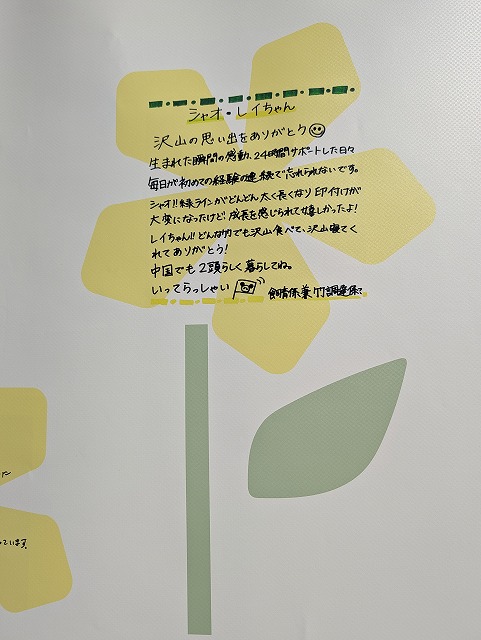 シャオ・レイちゃん
沢山の思い出をありがとう
生まれた瞬間の感動、24時間サポートした日々
毎日が初めての経験の連続で忘れられないです。
シャオ!!緑ラインがどんどん太く長くなり印付けが
大変になったけど成長を感じられて嬉しかったよ!
レイちゃん!!どんな竹でも沢山食べて、沢山寝てく
れてありがとう!
中国でも2頭らしく暮らしてね。
いってらっしゃい
飼育係兼竹調達係